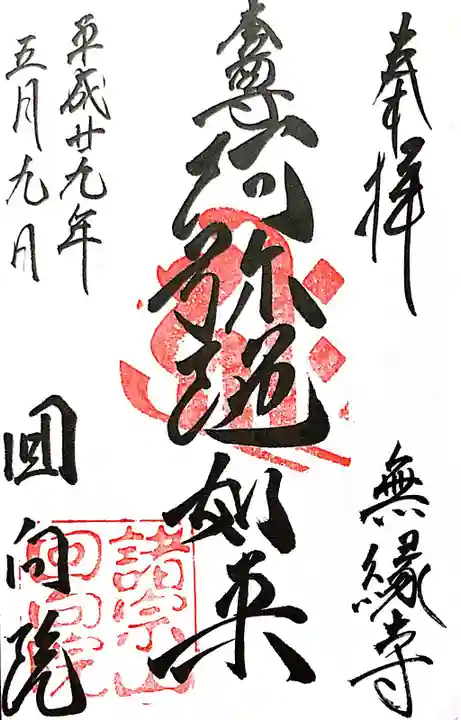 奉拝
無縁寺
本尊阿弥陀如来
平成廿九年
五月九日
回向院
諸宗山
回向院